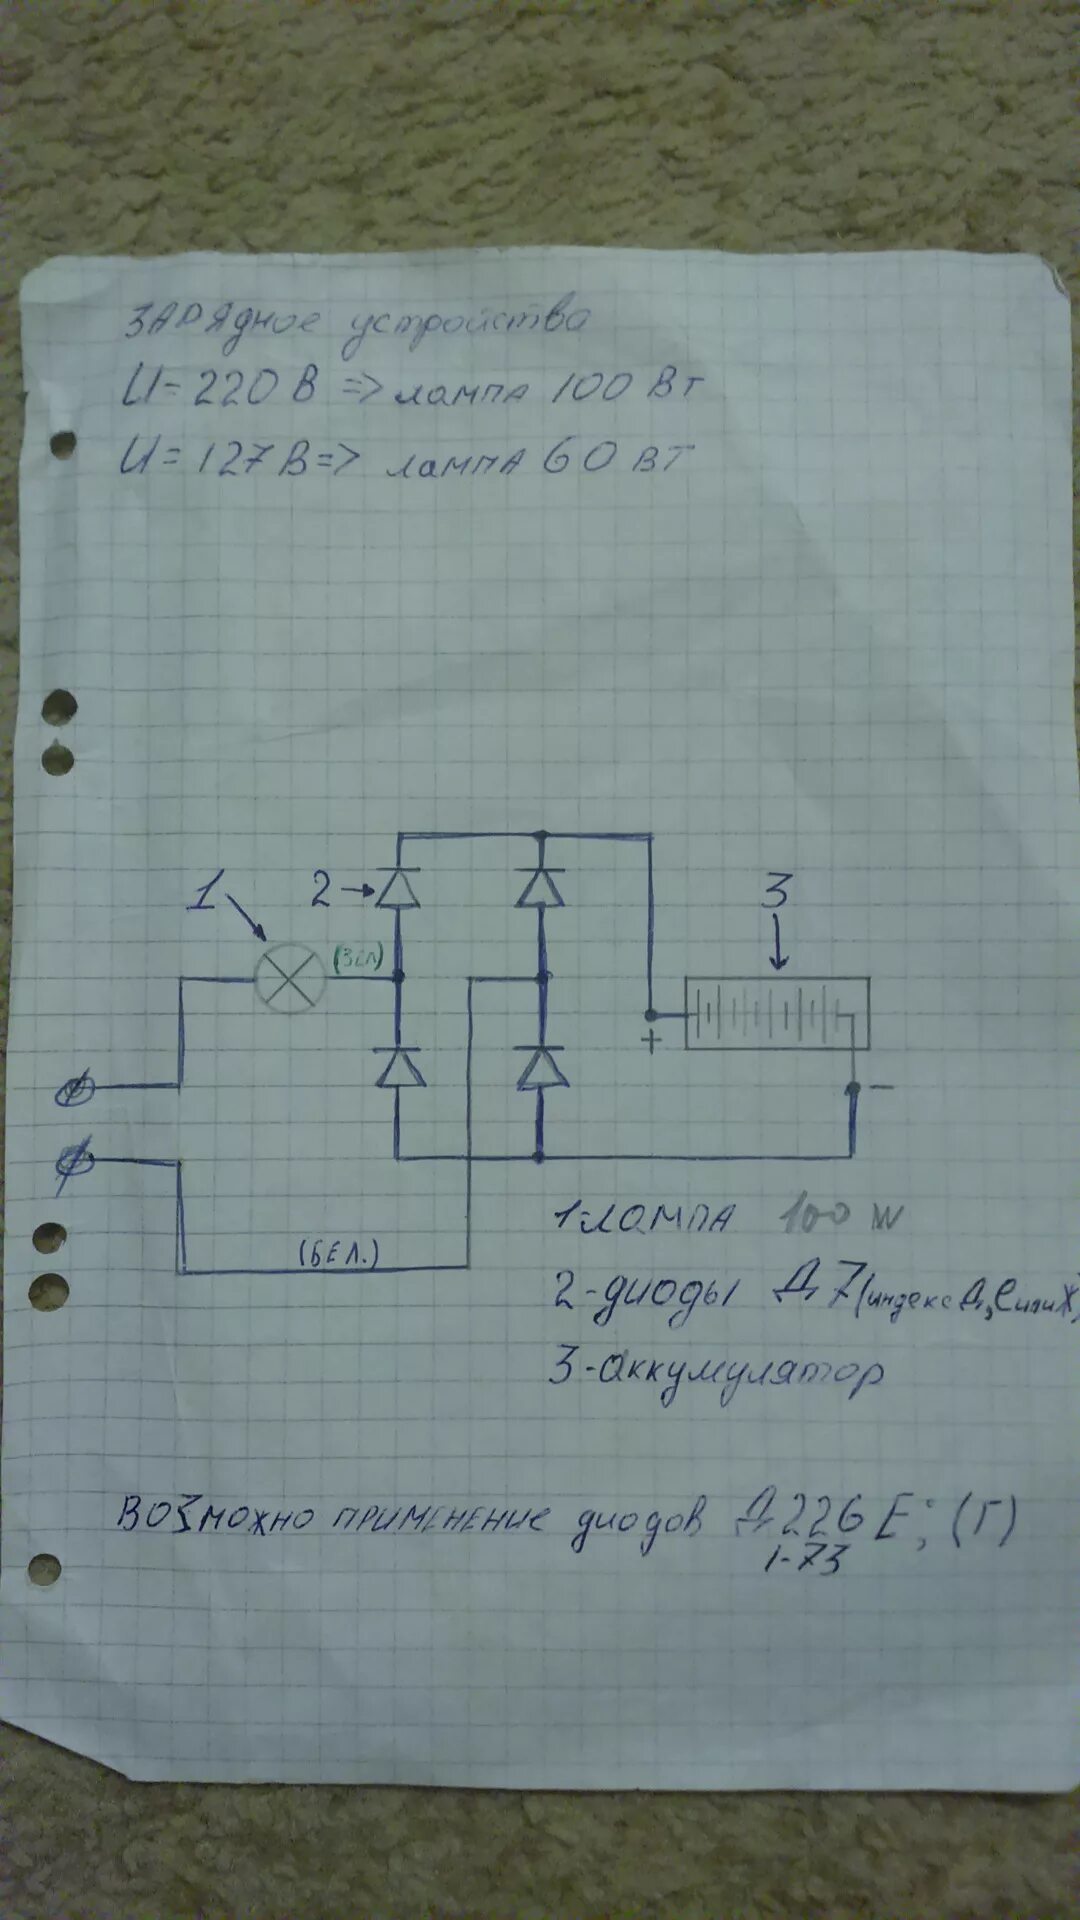 Зарядное устройство
U=220 В => лампа 100 Вт
U=127 В=> лампа 60 Вт
1 2 3
(Зел)
+
-
1-лампа 100 W
(БЕЛ.)
2-диоды Д7(индекс Д, Е или Ж)
3-аккумулятор
Возможно применение диодов Д226 Е; (Г)
1-73